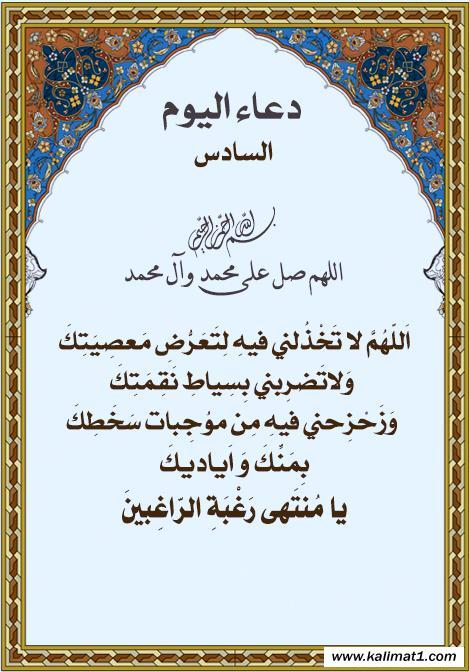 دعاء اليوم
السادس
بسم الله الرحمن الرحيم
اللهم صل على محمد وآل محمد
اَللّهُمَّ لا تَخْذُلني فيهِ لِتَعَرُّضِ مَعصِيَتِكَ
وَلاتَضرِبني بِسِياطِ نَقِمَتِكَ
وَزَحْزِحني فيهِ مِن موُجِبات سَخَطِكَ
بِمَنِّكَ وَ اَياديكَ
يا مُنتَهى رَغْبَةِ الرّاغِبينَ
www.kalimat1.com